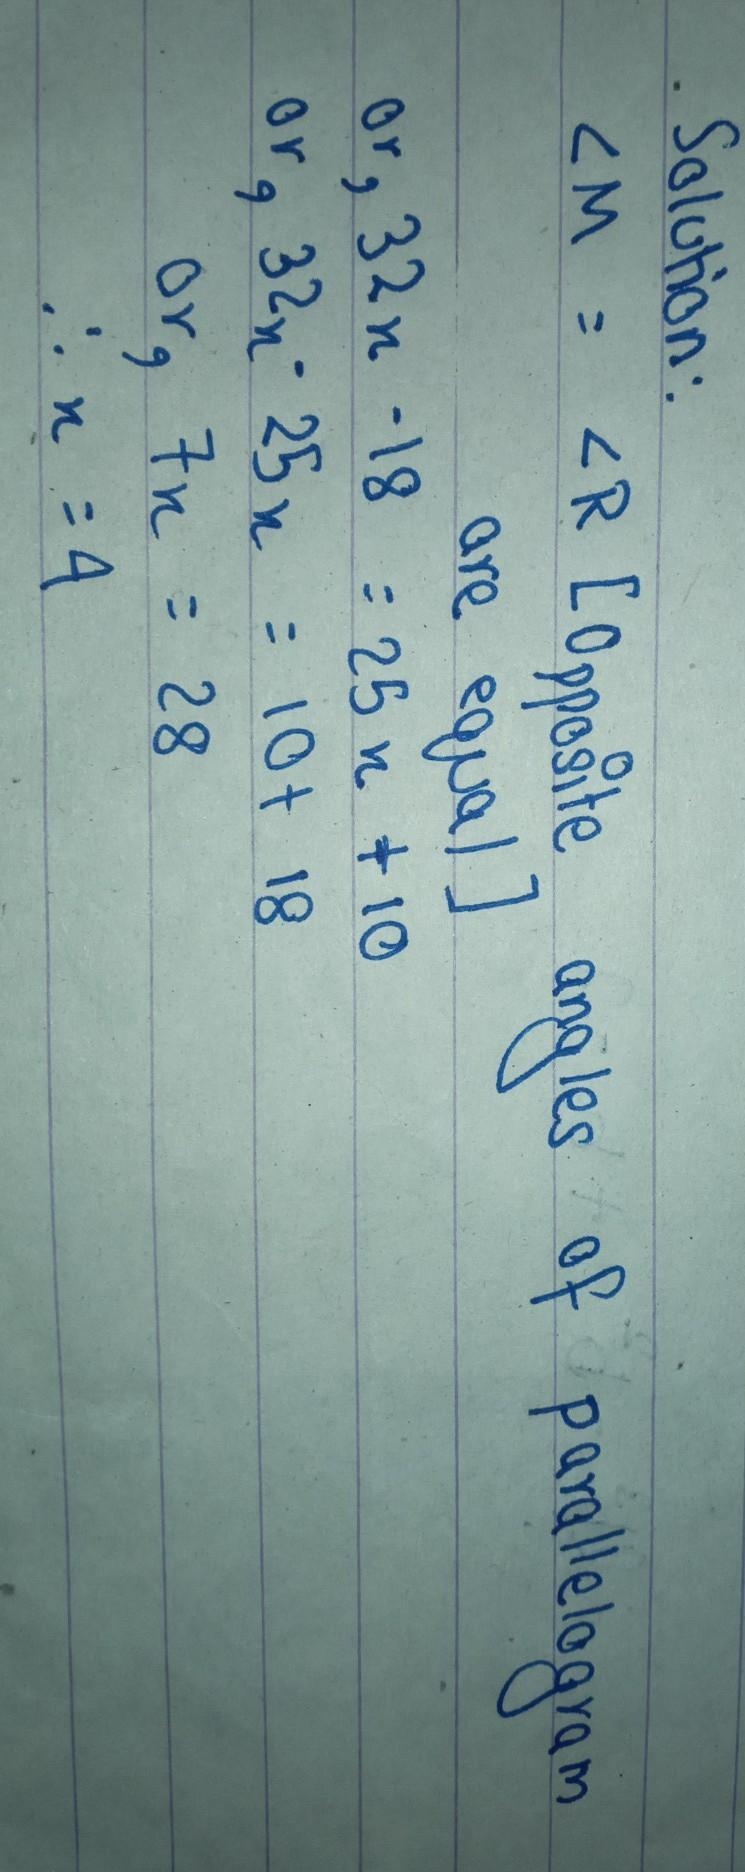 Solution:
<M = <R [Opposite angles of parallelogram
are equal]
or, 32x -18 = 25x +10
or, 32x - 25x = 10+ 18
or, 7x = 28
∴ x = 4